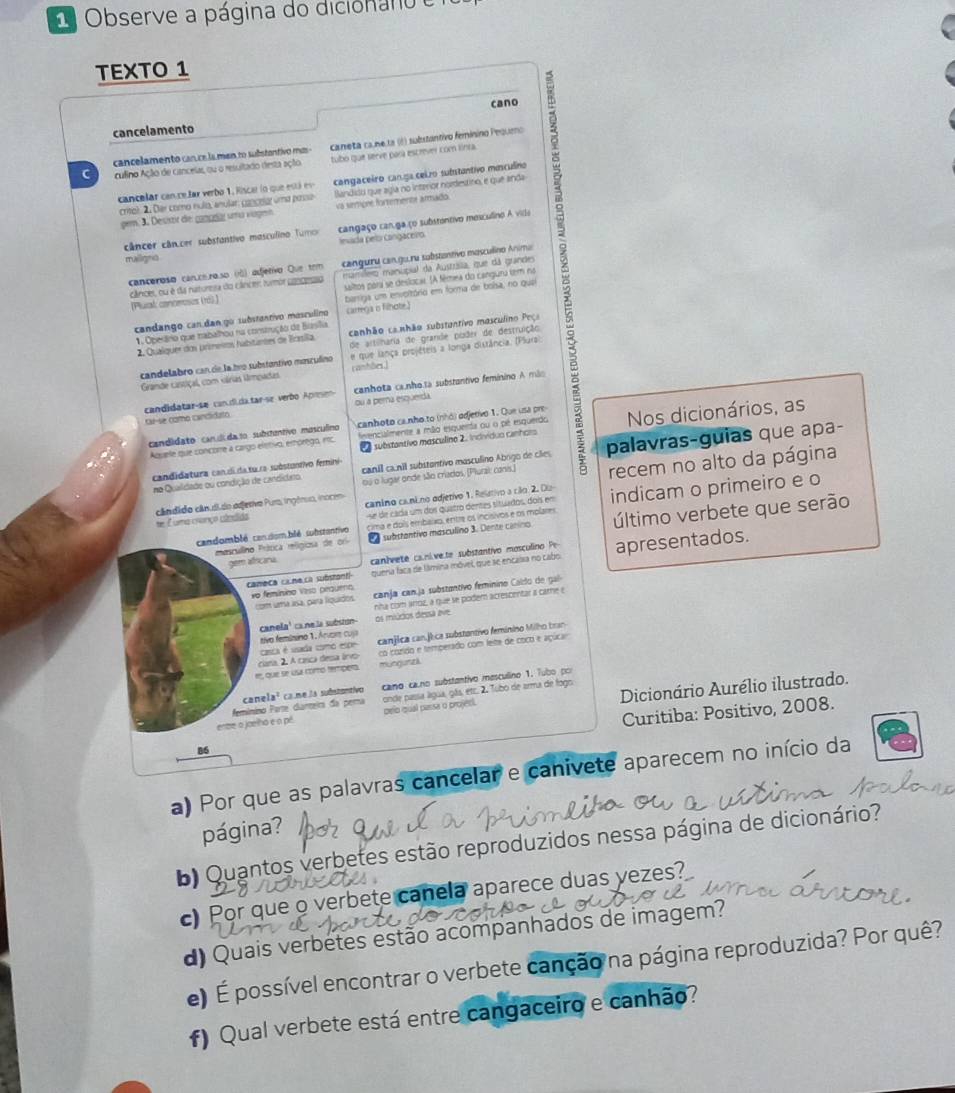 1 Observe a página do dicionário e
TEXTO 1
cancelamento
cano
C
cancelamento can.ce.la.men.to substantivo mas-
culino Ação de cancelar, ou o resultado desta ação.
cancelar can.ce.lar verbo 1. Riscar (o que está es-
crito). 2. Dar como nulo, anular: cancelar uma passa-
gem. 3. Desistir de: cancelar uma viagem.
câncer cân.cer substantivo masculino Tumor
maligno.
canceroso can.ce.ro.so (rô) adjetivo Que tem
câncer, ou é da natureza do câncer: tumor canceroso.
[Plural: cancerosos (ró).]
candango can.dan.go substantivo masculino
1. Operário que trabalhou na construção de Brasília.
2. Qualquer dos primeiros habitantes de Brasília.
candelabro can.de.la.bro substantivo masculino
Grande castiçal, com várias lâmpadas.
candidatar-se can.di.da.tar-se verbo Apresen-
tar-se como candidato.
candidato can.di.da.to substantivo masculino
Aquele que concorre a cargo eletivo, emprego, etc.
candidatura can.di.da.tu.ra substantivo femini-
no Qualidade ou condição de candidato.
cândido cân.di.do adjetivo Puro, ingênuo, inocen-
te: É uma criança cândida.
candomblé can.dom.blé substantivo
masculino Prática religiosa de ori-
gem africana.
caneca ca.ne.ca substanti-
vo feminino Vaso pequeno,
com uma asa, para líquidos.
canela¹ ca.ne.la substan-
tivo feminino 1. Árvore cuja
casca é usada como espe-
ciaria. 2. A casca dessa árvo-
re, que se usa como tempero.
canela² ca.ne.la substantivo
feminino Parte dianteira da perna
entre o joelho e o pé.
86
caneta ca.ne.ta (ê) substantivo feminino Pequeno
tubo que serve para escrever com tinta.
cangaceiro can.ga.cei.ro substantivo masculino
Bandido que agia no interior nordestino, e que anda-
va sempre fortemente armado.
cangaço can.ga.ço substantivo masculino A vida
levada pelo cangaceiro.
canguru can.gu.ru substantivo masculino Animal
mamífero marsupial da Austrália, que dá grandes
saltos para se deslocar. [A fêmea do canguru tem na
barriga um envoltório em forma de bolsa, no qual
carrega o filhote.]
canhão ca.nhão substantivo masculino Peça
de artilharia de grande poder de destruição,
e que lança projéteis a longa distância. [Plural:
canhões.]
canhota ca.nho.ta substantivo feminino A mão
ou a perna esquerda.
canhoto ca.nho.to (nhô) adjetivo 1. Que usa pre-
ferencialmente a mão esquerda ou o pé esquerdo.
substantivo masculino 2. Indivíduo canhoto.
canil ca.nil substantivo masculino Abrigo de cães,
ou o lugar onde são criados. [Plural: canis.]
canino ca.ni.no adjetivo 1. Relativo a cão. 2. Diz-
-se de cada um dos quatro dentes situados, dois em
cima e dois embaixo, entre os incisivos e os molares.
substantivo masculino 3. Dente canino.
canivete ca.ni.ve.te substantivo masculino Pe-
quena faca de lâmina móvel, que se encaixa no cabo.
canja can.ja substantivo feminino Caldo de gali-
nha com arroz, a que se podem acrescentar a carne e
os miúdos dessa ave.
canjica can.ji.ca substantivo feminino Milho bran-
co cozido e temperado com leite de coco e açúcar;
mungunzá.
cano ca.no substantivo masculino 1. Tubo por
onde passa água, gás, etc. 2. Tubo de arma de fogo
pelo qual passa o projétil.
COMPANHIA BRASILEIRA DE EDUCAÇÃO E SISTEMAS DE ENSINO / AURÉLIO BUARQUE DE HOLANDA FERREIRA
Nos dicionários, as
palavras-guias que apa-
recem no alto da página
indicam o primeiro e o
último verbete que serão
apresentados.
Dicionário Aurélio ilustrado.
Curitiba: Positivo, 2008.
a) Por que as palavras cancelar e canivete aparecem no início da
página? por que é a primeira ou a última palavra
b) Quantos verbetes estão reproduzidos nessa página de dicionário?
28 verbetes.
c) Por que o verbete canela aparece duas vezes?
um é parte do corpo e outro é uma árvore.
d) Quais verbetes estão acompanhados de imagem?
e) É possível encontrar o verbete canção na página reproduzida? Por quê?
f) Qual verbete está entre cangaceiro e canhão?